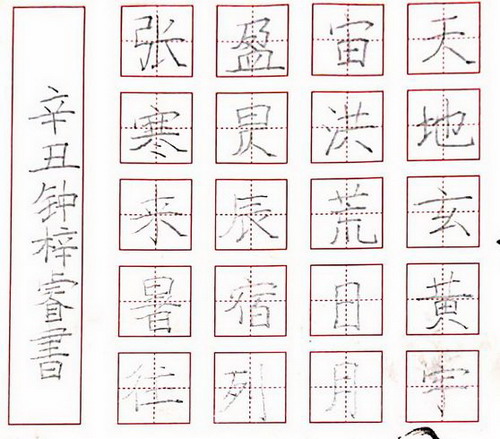 天地玄黄宇
宙洪荒日月
盈昃辰宿列
张寒来暑往
辛丑钟梓睿書